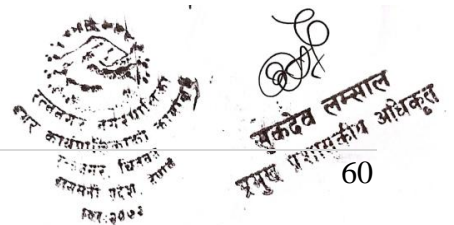 रत्ननगर नगरपालिका
नगर कार्यपालिकाको कार्यालय
रत्ननगर, चितवन
बागमती प्रदेश, नेपाल
सुकदेव लम्साल
प्रमुख प्रशासकीय अधिकृत
60